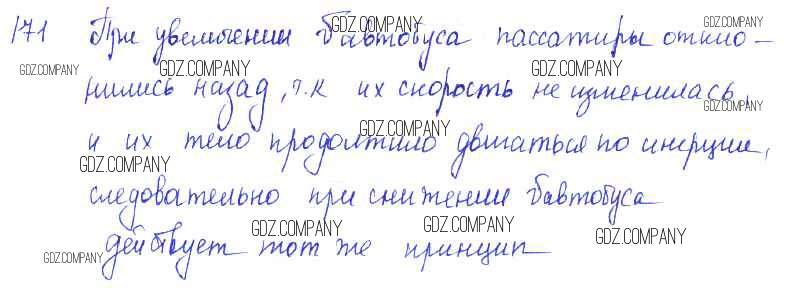 171 При увеличении ϑавтобуса пассажиры откло-
нились назад, т.к их скорость не изменилась,
и их тело продолжило двигаться по инерции,
следовательно при снижении ϑавтобуса
действует тот же принцип
GDZ.COMPANY
GDZ.COMPANY
GDZ.COMPANY
GDZ.COMPANY
GDZ.COMPANY
GDZ.COMPANY
GDZ.COMPANY
GDZ.COMPANY
GDZ.COMPANY
GDZ.COMPANY
GDZ.COMPANY
GDZ.COMPANY